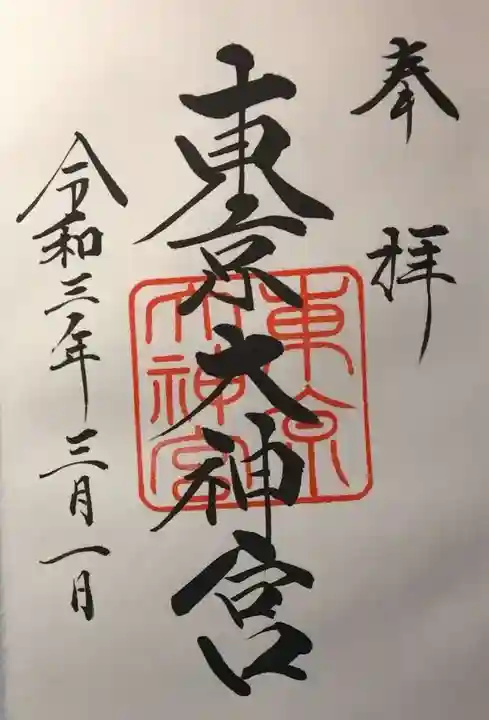 奉拝
東京大神宮
東京
大神宮
令和三年三月一日